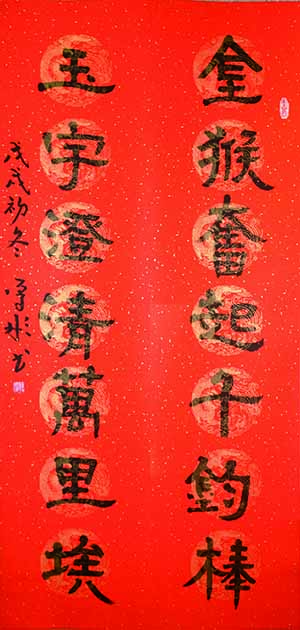 金猴奮起千鈞棒
玉宇澄清萬里埃
戊戌初冬 彬书